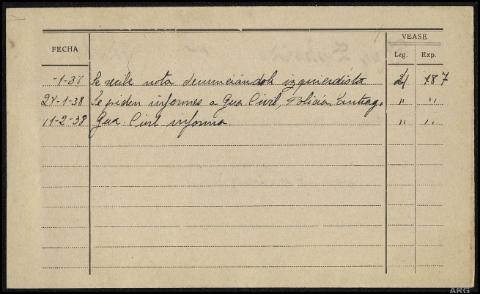 VEASE
FECHA
Leg. Exp.
-1-37 Se recibe nota denunciándole izquierdista 21 187
27-1-38 Se piden informes a Gua. Civil, Policía Santiago " "
11-2-38 Gua. Civil informa " "
ARG